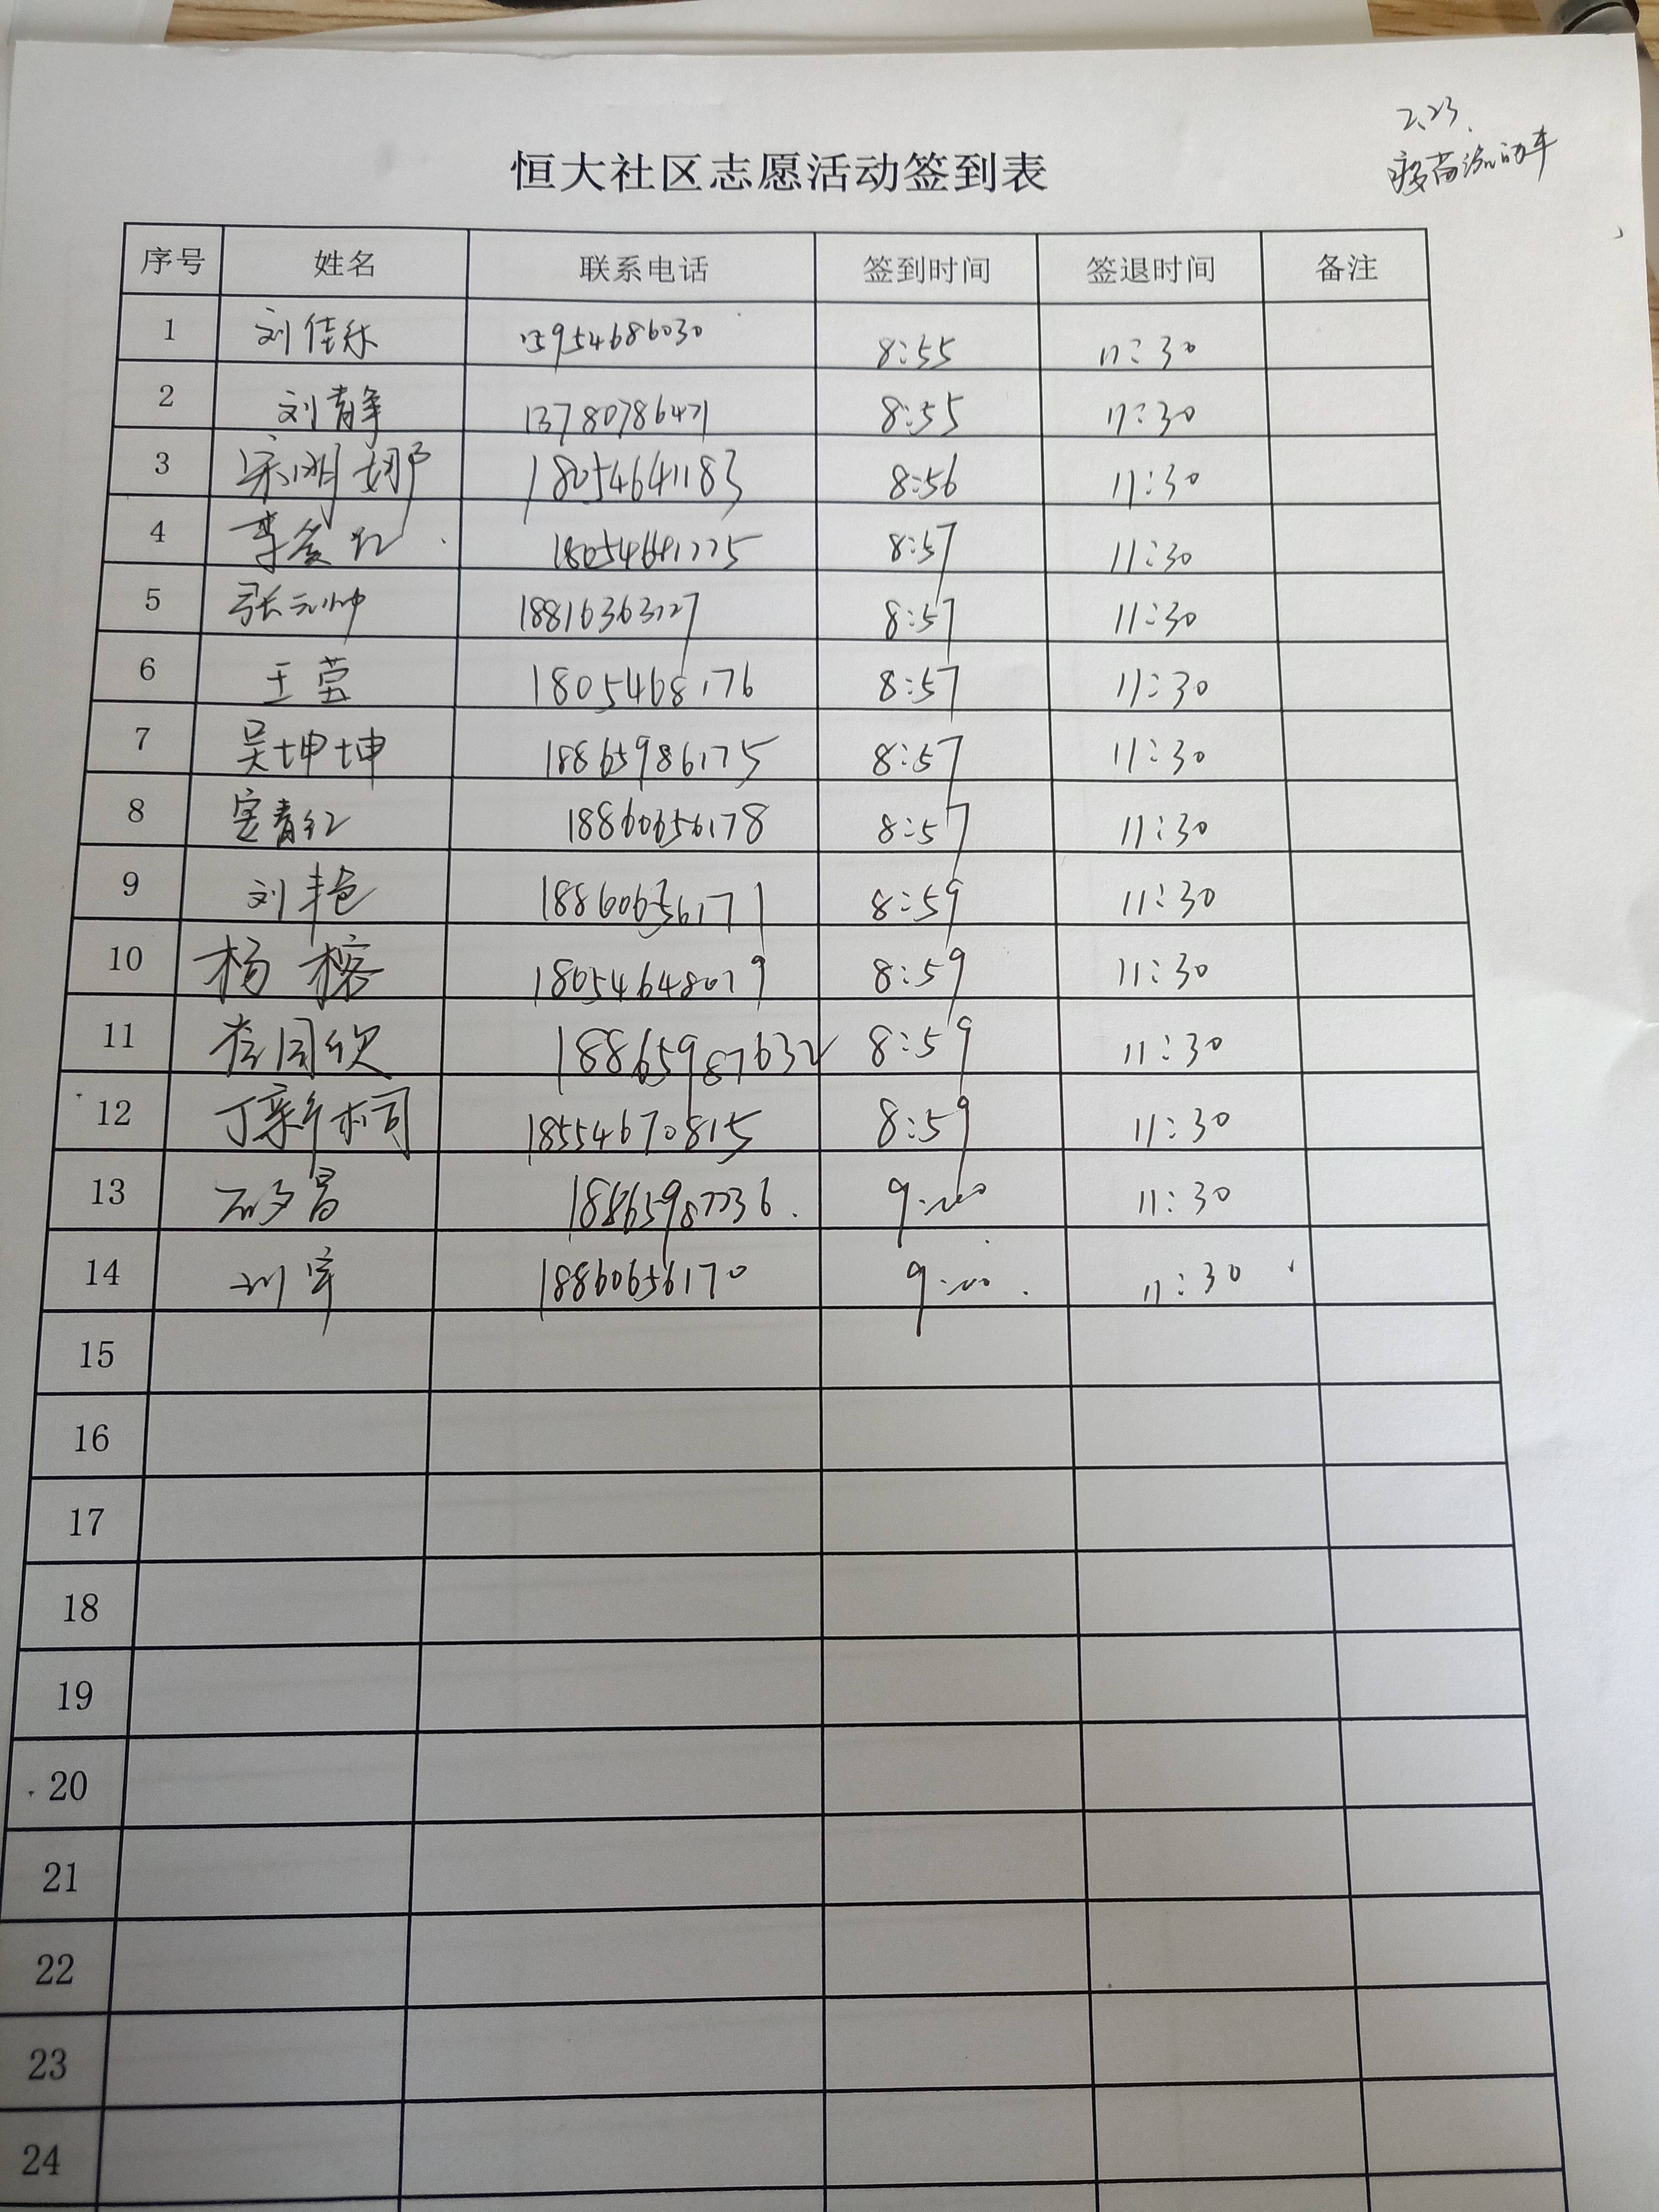 2.23.
疫苗流动车
恒大社区志愿活动签到表
序号 姓名 联系电话 签到时间 签退时间 备注
1 刘佳乐 15954686030 8:55 11:30
2 刘静 13780786471 8:55 11:30
3 宋明娜 18054641183 8:56 11:30
4 李爱红 8:57 11:30
5 张元帅 18816363127 8:57 11:30
6 王莹 1805468176 8:57 11:30
7 吴坤坤 18865986175 8:57 11:30
8 青红 18860656178 8:57 11:30
9 刘艳 18860656171 8:59 11:30
10 杨榕 18054648079 8:59 11:30
11 18865987632 8:59 11:30
12 丁新桐 18554670815 8:59 11:30
13 18865987736 9:00 11:30
14 刘军 18860656170 9:00 11:30
15
16
17
18
19
20
21
22
23
24